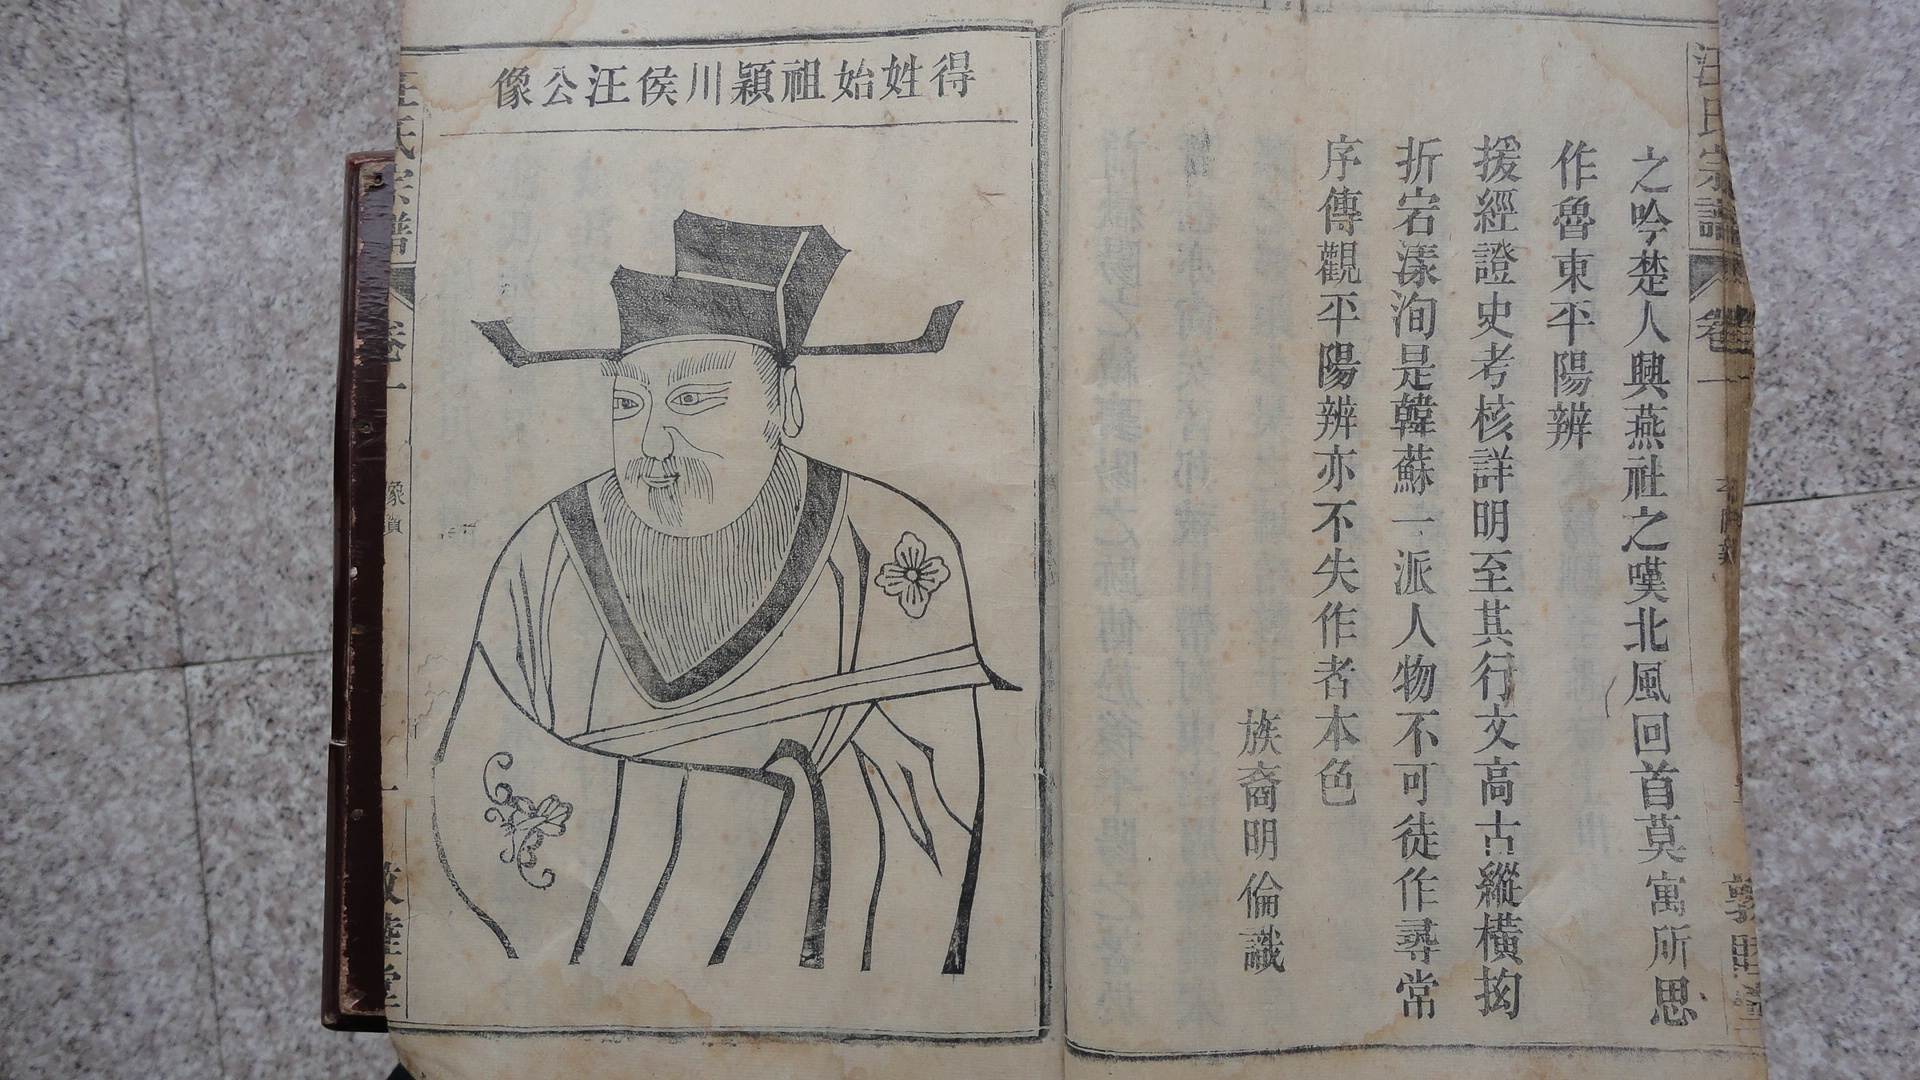 汪氏宗譜
卷一
之吟楚人興燕社之嘆北風回首莫寓所思
作魯東平陽辨
援經證史考核詳明至其行文高古縱橫拗
折宕漾洵是韓蘇一派人物不可徒作尋常
序傳觀平陽辨亦不失作者本色
族裔明倫識
得姓始祖穎川侯汪公像
汪氏宗譜
卷一
像贊
一
敦睦堂